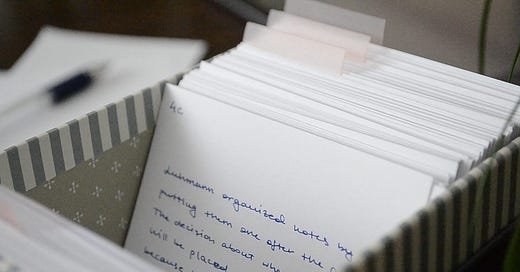 4c
Luhmann organized notes by
putting them one after the
The decision about
will be placed
because